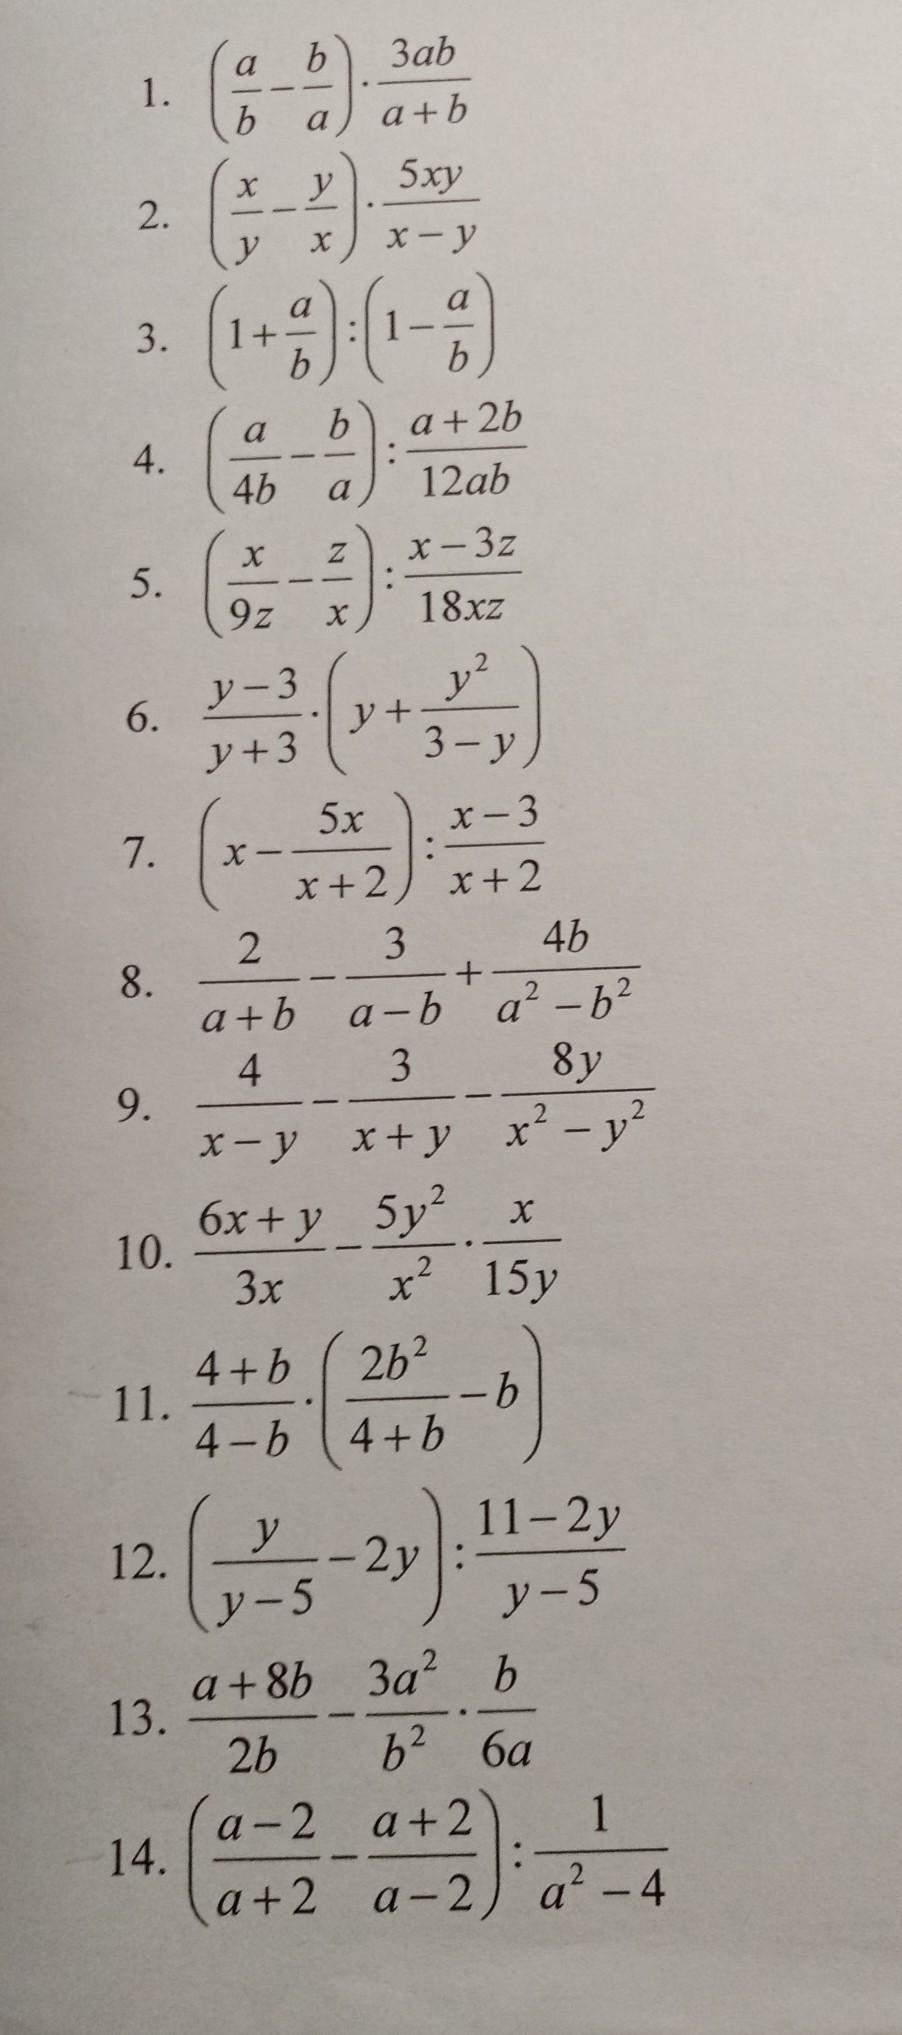 1. (a/b − b/a) · 3ab/(a + b)
2. (x/y − y/x) · 5xy/(x − y)
3. (1 + a/b) : (1 − a/b)
4. (a/4b − b/a) : (a + 2b)/12ab
5. (x/9z − z/x) : (x − 3z)/18xz
6. (y − 3)/(y + 3) · (y + y²/(3 − y))
7. (x − 5x/(x + 2)) : (x − 3)/(x + 2)
8. 2/(a + b) − 3/(a − b) + 4b/(a² − b²)
9. 4/(x − y) − 3/(x + y) − 8y/(x² − y²)
10. (6x + y)/3x − 5y²/x² · x/15y
11. (4 + b)/(4 − b) · (2b²/(4 + b) − b)
12. (y/(y − 5) − 2y) : (11 − 2y)/(y − 5)
13. (a + 8b)/2b − 3a²/b² · b/6a
14. ((a − 2)/(a + 2) − (a + 2)/(a − 2)) : 1/(a² − 4)